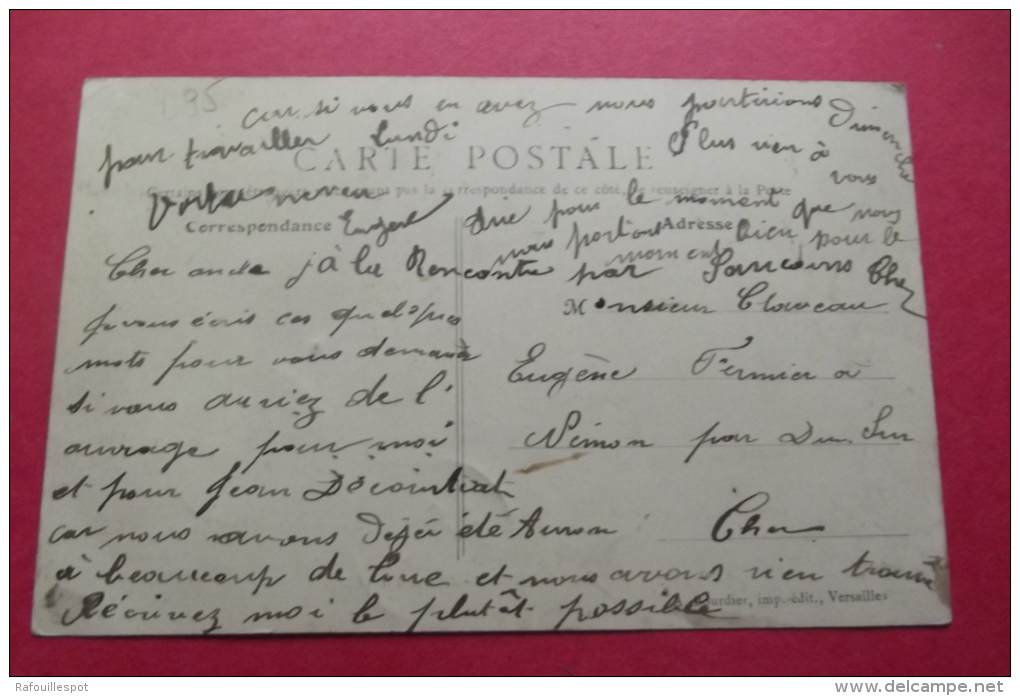 95
car si vous en avez nous partirions Dimenche
pour travailler Lundi
CARTE POSTALE
Plus rien à
vous
pas la correspondance de ce côté, se renseigner à la Poste
votre neveu
Eugène
Correspondance
Adresse
dire pour le moment que nous
nous portons bien pour le
moment
Cher oncle
j à la Rencontre par Sancoins Cher
je vous écris ces quelques
mots pour vous demander
si vous auriez de l'
ouvrage pour moi
et pour Jean
car nous avons dejà été Auron
à beaucoup de et nous avons rien trouvé
Récrivez moi le plutôt possible
Monsieur Claveau
Eugène Fermier à
Némon par Dun. Sur
Cher
Bourdier, imp.-édit., Versailles
Rafouillespot
www.delcampe.net